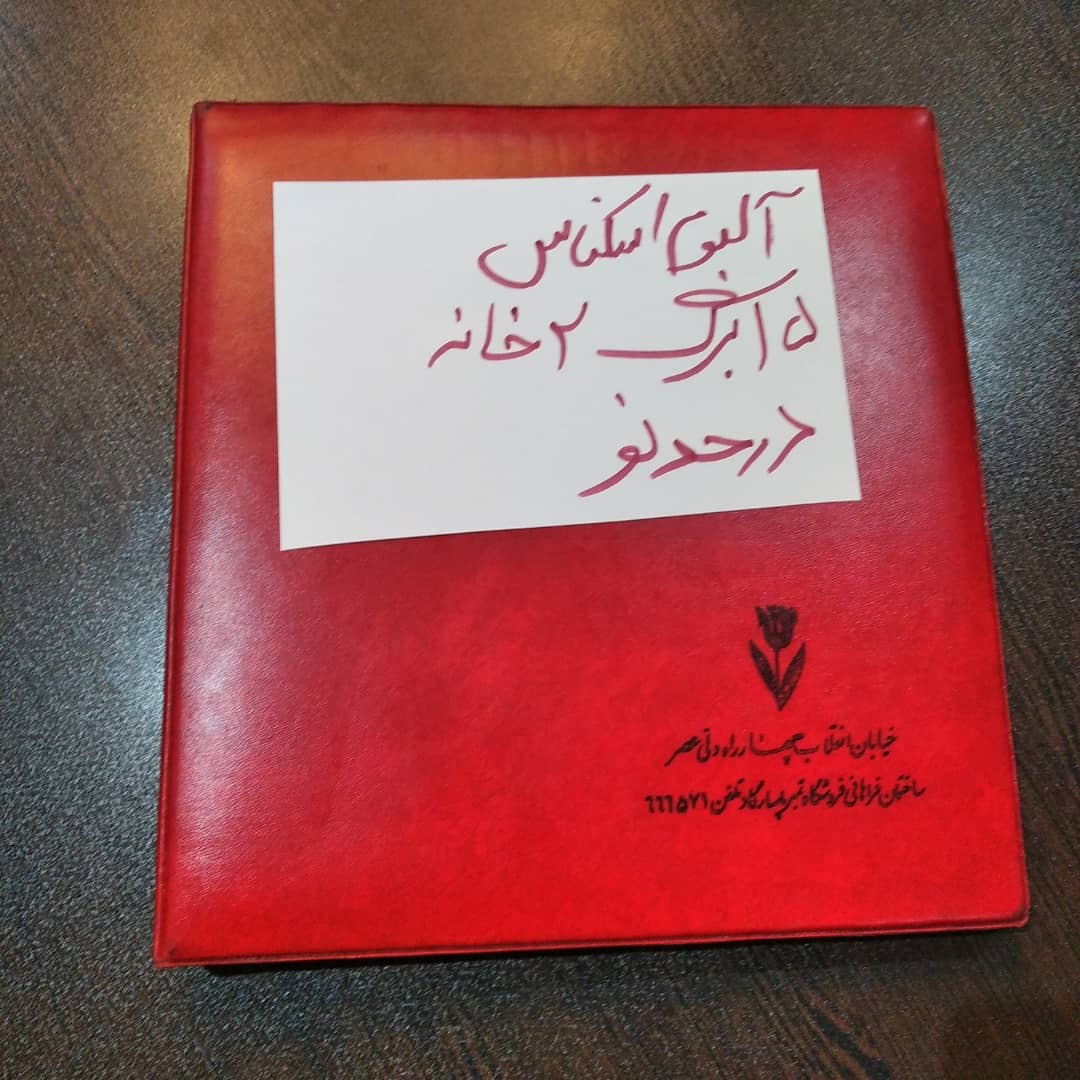 آلبوم اسکناس
۱۵ برگ ۲ خانه
در حد نو
خیابان انقلاب چهار راه ولی عصر
ساختمان فراهانی فروشگاه تمبر پاسارگاد تلفن ۶۶۶۵۷۱